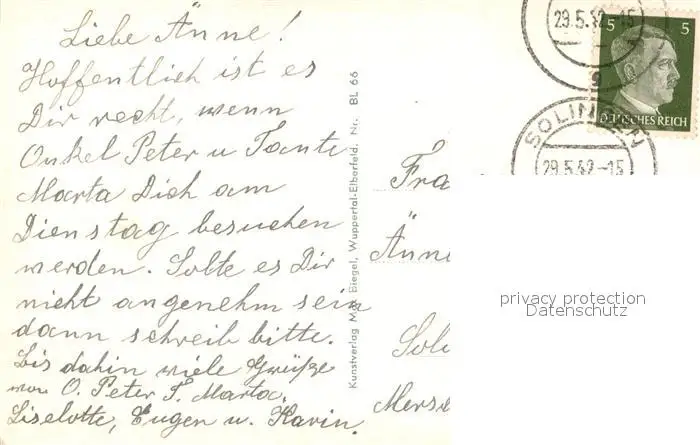 Liebe Änne!
Hoffentlich ist es
Dir recht, wenn
Onkel Peter u Tante
Marta Dich am
Dienstag besuchen
werden. Solte es Dir
nicht angenehm sein
dann schreib bitte.
Bis dahin viele Grüße
von O. Peter T. Marta.
Liselotte, Eugen u. Karin.
Kunstverlag Max Biegel, Wuppertal-Elberfeld. Nr. BL 66
29.5.42-15
5 5
DEUTSCHES REICH
SOLINGEN
29.5.42-15
Fra
Änne
Soli
Merse
privacy protection
Datenschutz